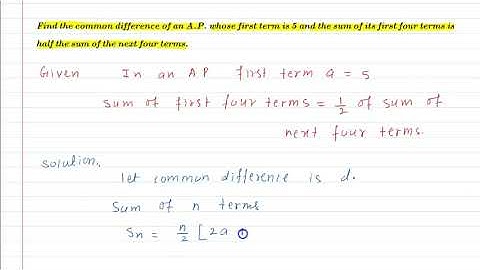 Find the common difference of an A.P. whose first term is 5 and the sum of its first four terms is
half the sum of the next four terms.
Given In an AP first term a = 5
sum of first four terms = 1/2 of sum of
next four terms.
Solution.
let common difference is d.
Sum of n terms
Sn = n/2 [2a